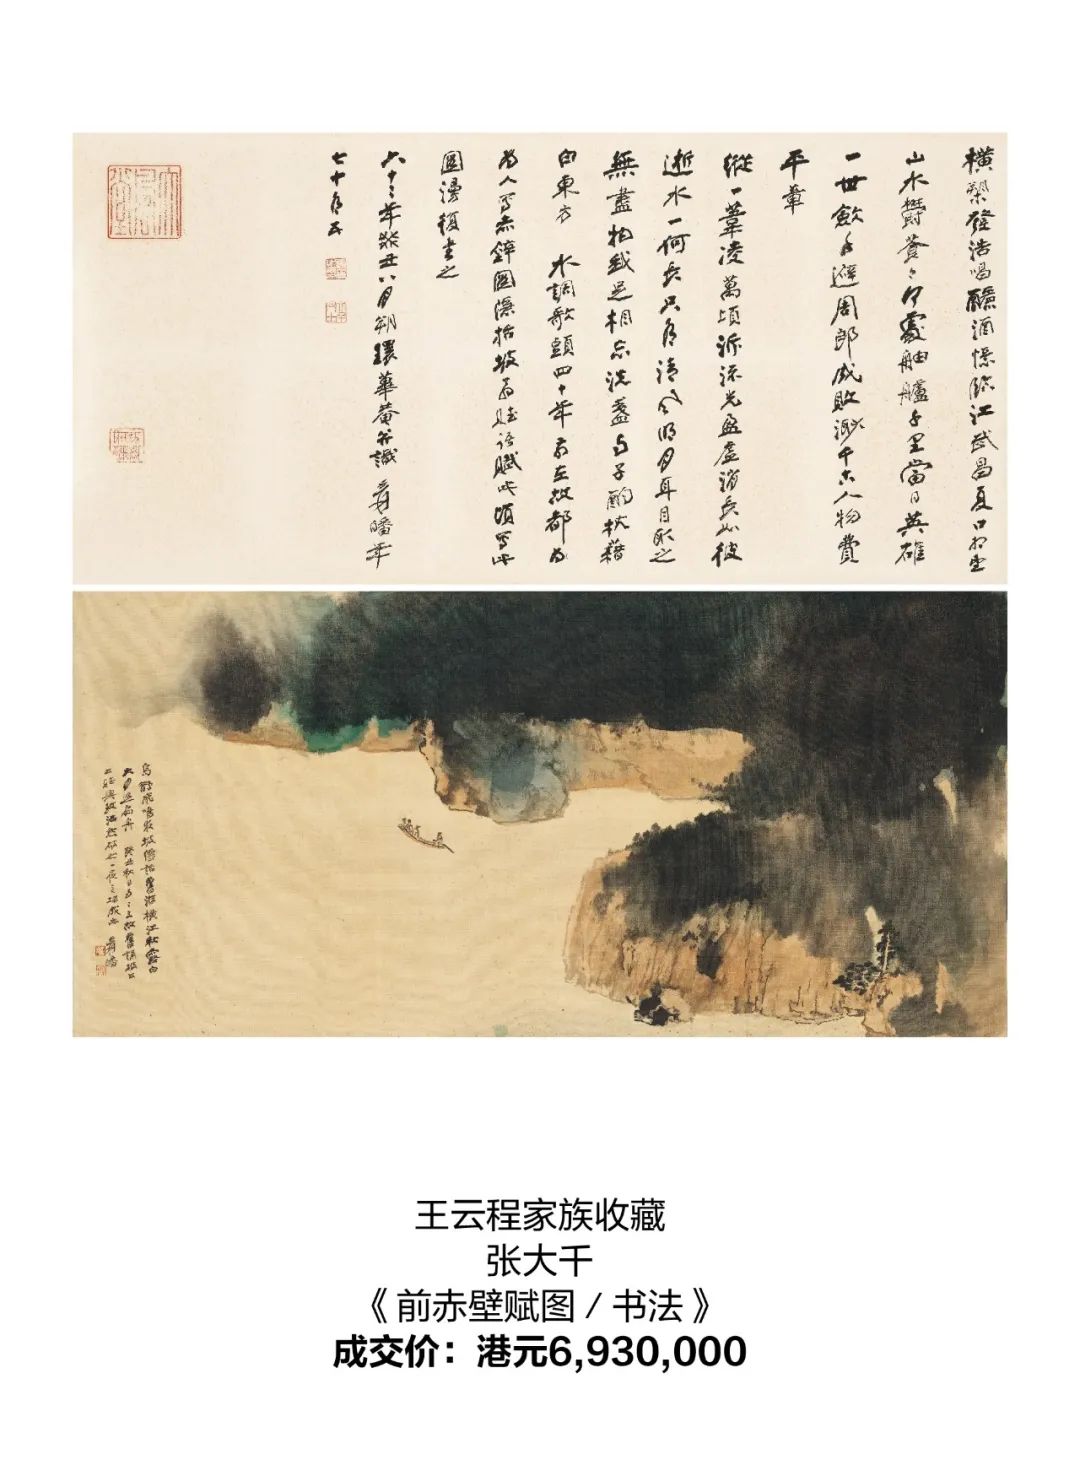 橫槊發浩唱釃酒憬臨江武昌夏口相望
山水鬱蒼〻何處舳艫千里當日英雄
一世歛手避周郎成敗渺千古人物費
平章
縱一葦凌萬頃泝流光盈虛消長如彼
逝水一何長只有清風明月耳目取之
無盡物我足相忘洗盞與子酌枕藉
白東方 水調歌頭四十年前在故都為
為人寫赤壁圖檃括坡翁賦語賦此頃寫此
圖漫復書之
六十二年癸丑八月朔環蓽菴并識 爰皤年
七十有五
舊游橫江秋露白
扁舟 癸丑秋日
爰皤
王云程家族收藏
张大千
《 前赤壁赋图 / 书法 》
成交价：港元6,930,000